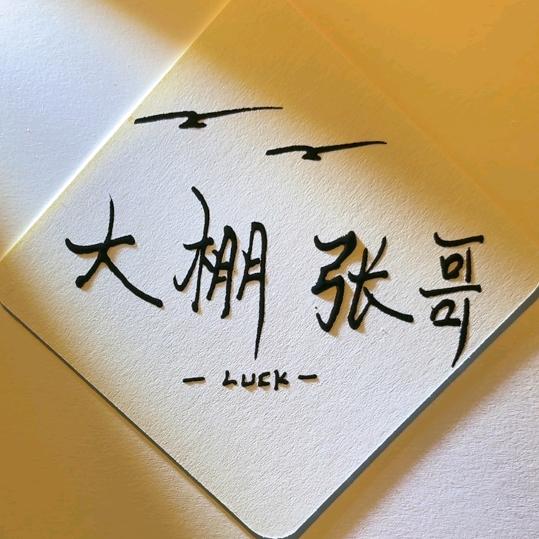 大棚张哥
- LUCK -